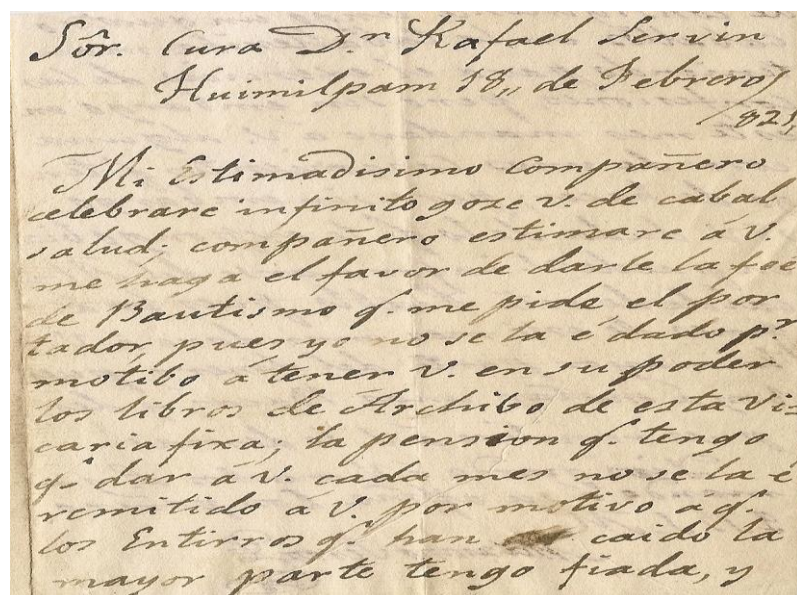 Sôr. Cura D.n Rafael Servin
Huimilpam 18,, de Febrero/
/821,
Mi Estimadisimo Compañero
celebrare infinito goze v. de cabal
salud. compañero estimare á V.
me haga el favor de darle la foé
de Bautismo q.e me pide el por
tador, pues yo no se la é dado p.r
motibo á tener V. en su poder
los libros de Archibo de esta Vi=
caria fixa; la pension q.e tengo
q.e dar á V. cada mes no se la é
remitido á V. por motivo á q.e
los Entirros q.e han caido la
mayor parte tengo fiada, y